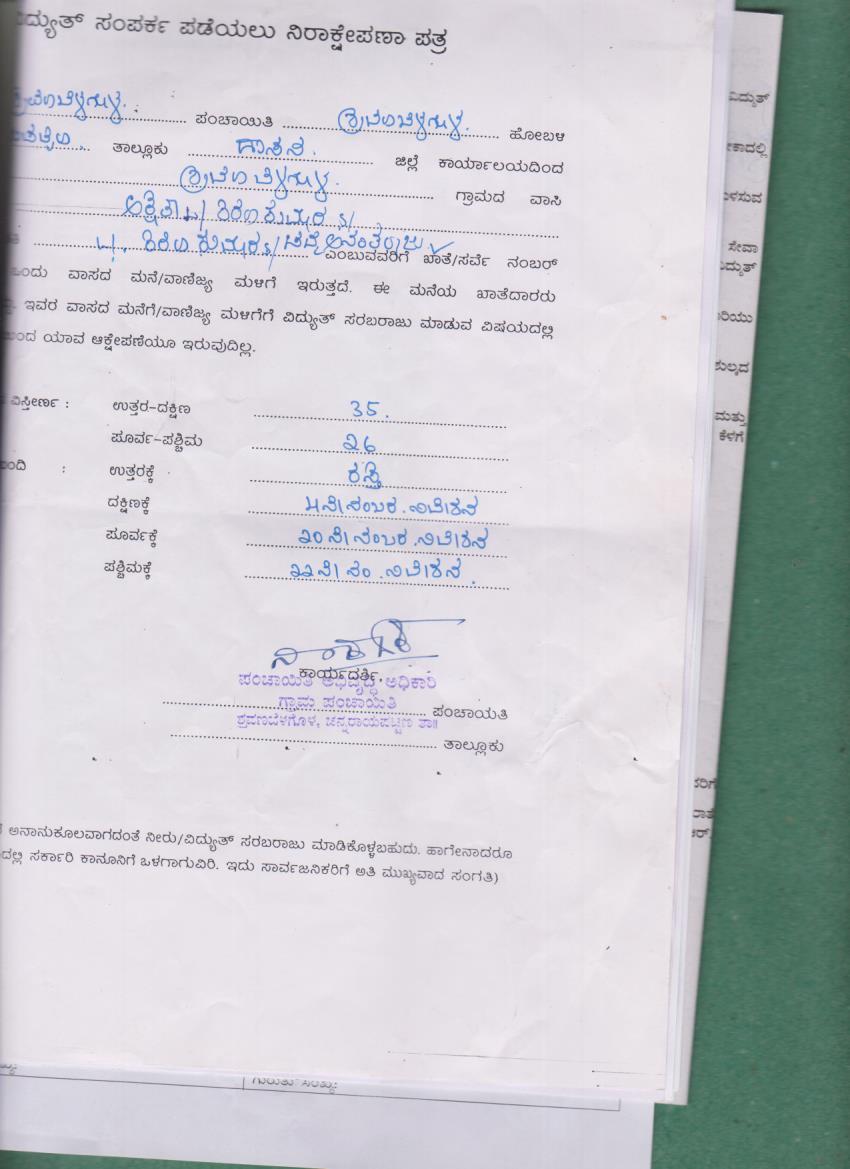 ವಿದ್ಯುತ್ ಸಂಪರ್ಕ ಪಡೆಯಲು ನಿರಾಕ್ಷೇಪಣಾ ಪತ್ರ
ಶ್ರವಣಬೆಳಗೊಳ. ಪಂಚಾಯಿತಿ ಶ್ರವಣಬೆಳಗೊಳ. ಹೋಬಳಿ
ತಾಲ್ಲೂಕು ಹಾಸನ. ಜಿಲ್ಲೆ ಕಾರ್ಯಾಲಯದಿಂದ
ಶ್ರವಣಬೆಳಗೊಳ. ಗ್ರಾಮದ ವಾಸಿ
ಕಿರಣಕುಮಾರ
ಕಿರಣ ಕುಮಾರ ಎಂಬುವವರಿಗೆ ಖಾತೆ/ಸರ್ವೆ ನಂಬರ್
ಒಂದು ವಾಸದ ಮನೆ/ವಾಣಿಜ್ಯ ಮಳಿಗೆ ಇರುತ್ತದೆ. ಈ ಮನೆಯ ಖಾತೆದಾರರು
ಇವರ ವಾಸದ ಮನೆಗೆ/ವಾಣಿಜ್ಯ ಮಳಿಗೆಗೆ ವಿದ್ಯುತ್ ಸರಬರಾಜು ಮಾಡುವ ವಿಷಯದಲ್ಲಿ
ಯಾವ ಆಕ್ಷೇಪಣೆಯೂ ಇರುವುದಿಲ್ಲ.
ವಿಸ್ತೀರ್ಣ : ಉತ್ತರ-ದಕ್ಷಿಣ 35.
ಪೂರ್ವ-ಪಶ್ಚಿಮ ೨6
: ಉತ್ತರಕ್ಕೆ ರಸ್ತೆ
ದಕ್ಷಿಣಕ್ಕೆ ನಂಬರ ನಿವೇಶನ
ಪೂರ್ವಕ್ಕೆ ೨೦ನೇ ನಂಬರ ನಿವೇಶನ
ಪಶ್ಚಿಮಕ್ಕೆ ೨೨ನೇ ನಂ. ನಿವೇಶನ.
ಕಾರ್ಯದರ್ಶಿ,
ಪಂಚಾಯಿತಿ ಅಭಿವೃದ್ಧಿ ಅಧಿಕಾರಿ
ಗ್ರಾಮ ಪಂಚಾಯಿತಿ ಪಂಚಾಯತಿ
ಶ್ರವಣಬೆಳಗೊಳ, ಚನ್ನರಾಯಪಟ್ಟಣ ತಾ||
ತಾಲ್ಲೂಕು
ಅನಾನುಕೂಲವಾಗದಂತೆ ನೀರು/ವಿದ್ಯುತ್ ಸರಬರಾಜು ಮಾಡಿಕೊಳ್ಳಬಹುದು. ಹಾಗೇನಾದರೂ
ಸರ್ಕಾರಿ ಕಾನೂನಿಗೆ ಒಳಗಾಗುವಿರಿ. ಇದು ಸಾರ್ವಜನಿಕರಿಗೆ ಅತಿ ಮುಖ್ಯವಾದ ಸಂಗತಿ)
ವಿದ್ಯುತ್
ಸೇವಾ
ವಿದ್ಯುತ್
ಶುಲ್ಕದ
ಮತ್ತು
ಕೆಳಗೆ